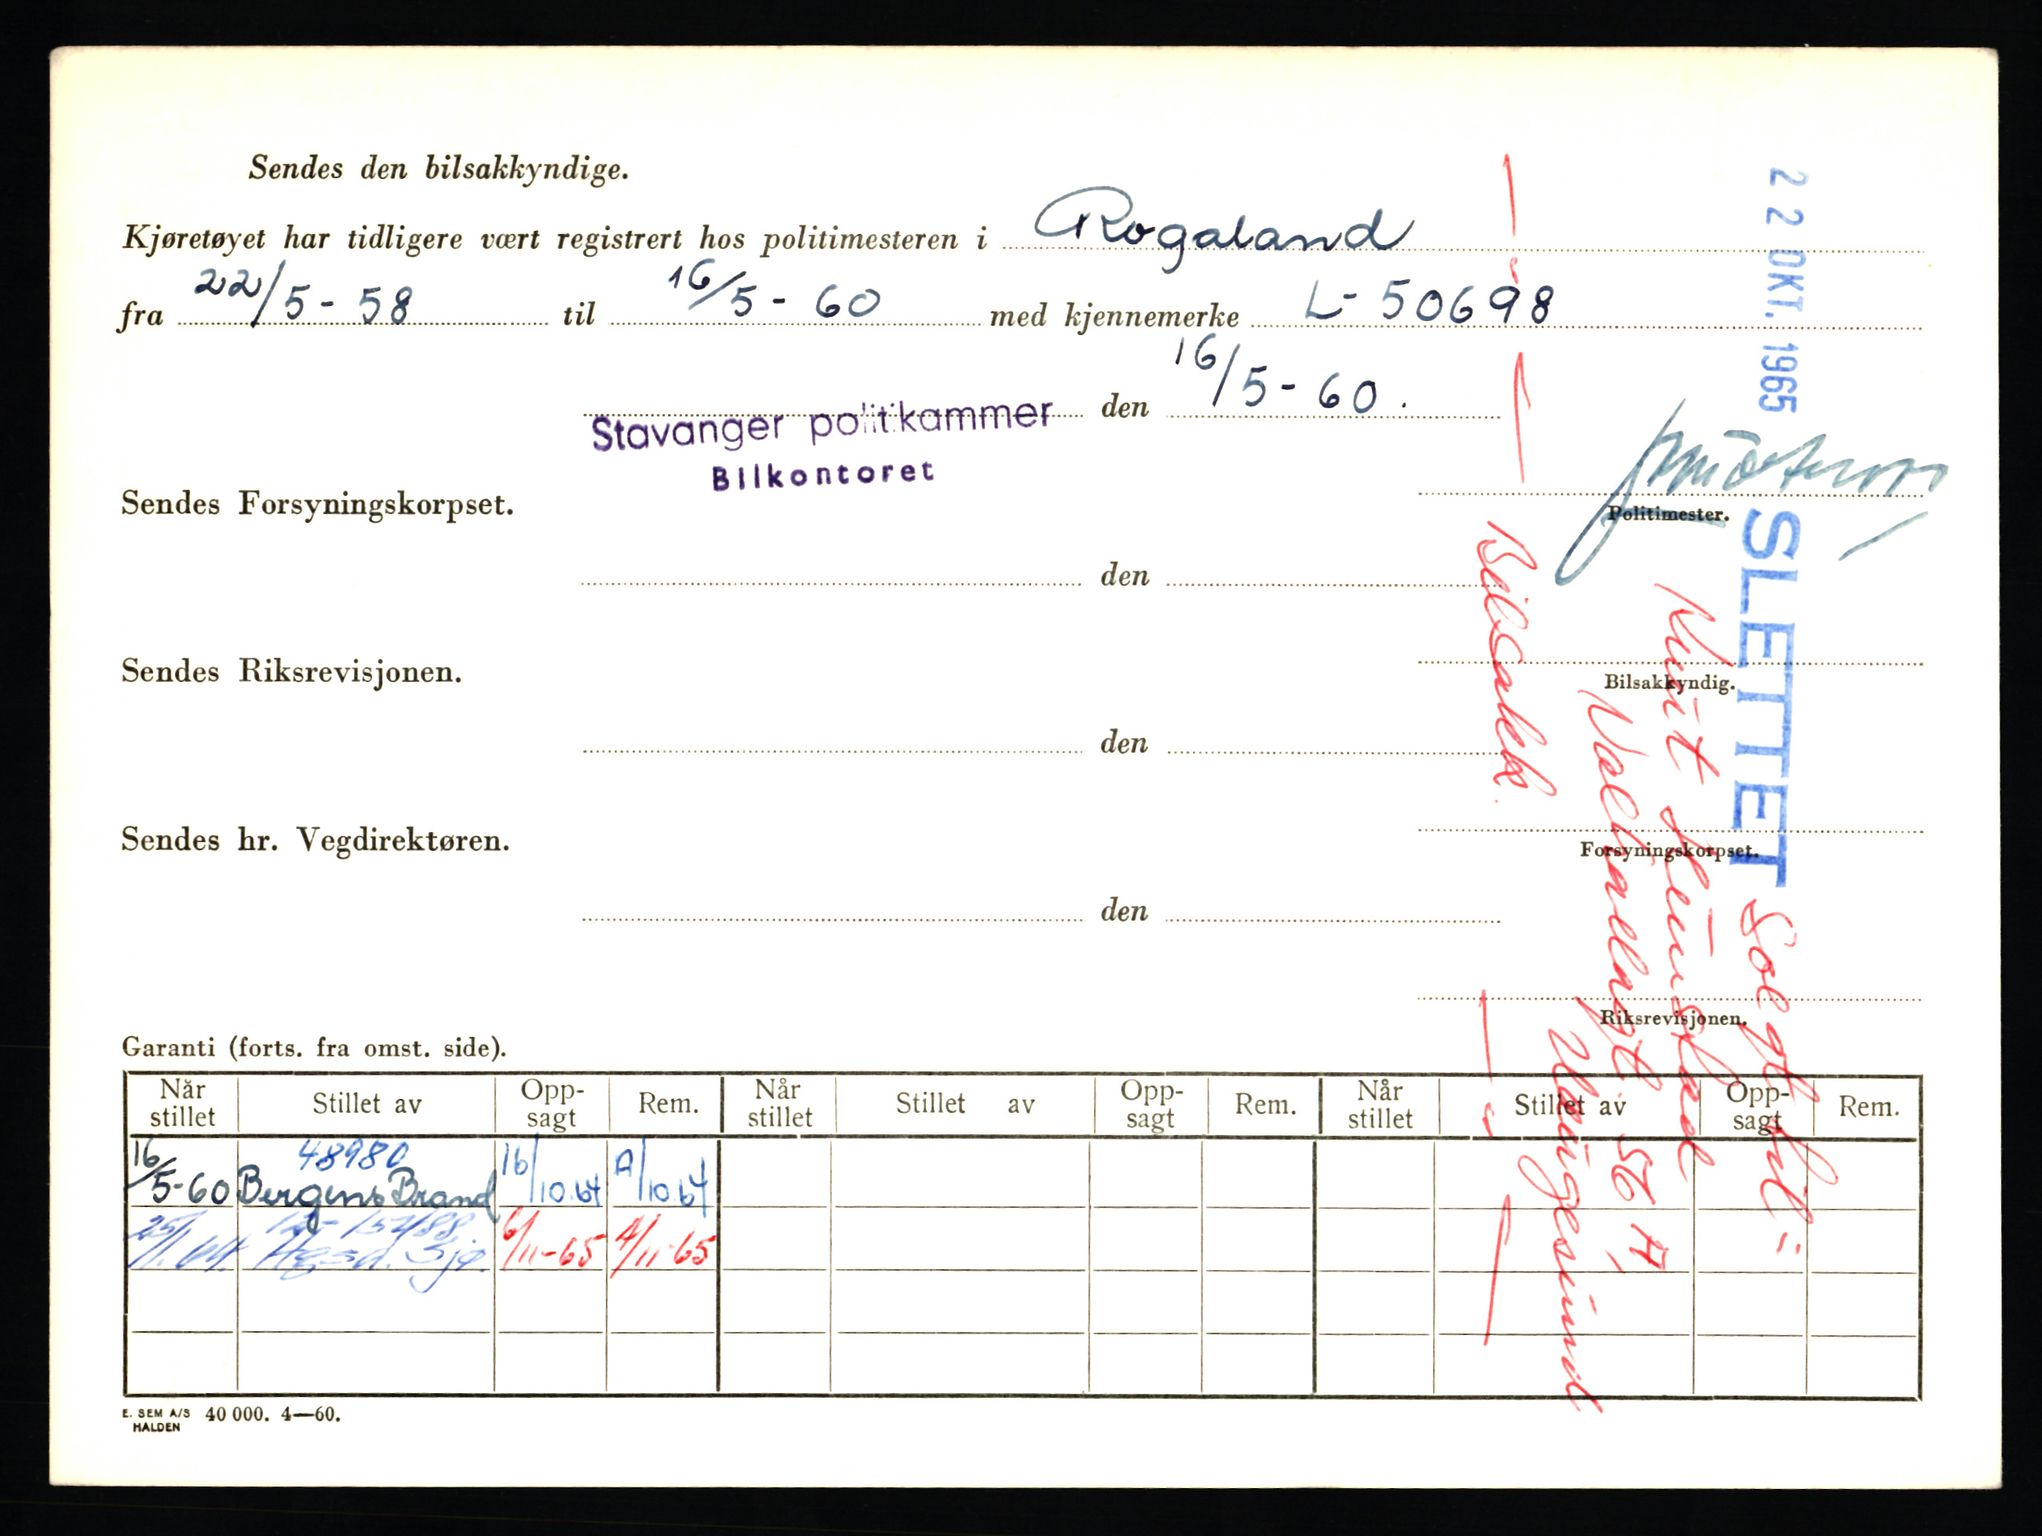 Sendes den bilsakkyndige.
Kjøretøyet har tidligere vært registrert hos politimesteren i Rogaland
fra 22/5-58 til 16/5-60 med kjennemerke L-50698
Stavanger politikammer den 16/5-60.
Bilkontoret
Sendes Forsyningskorpset.
Politimester.
den
Bilsakkyndig.
Sendes Riksrevisjonen.
den
Forsyningskorpset.
Sendes hr. Vegdirektøren.
den
Riksrevisjonen.
22 OKT. 1965
SLETTET
Solgt til:
Knut
56 A,
Haugesund
Bilsakk.
Garanti (forts. fra omst. side).
Når stillet Stillet av Opp-sagt Rem. Når stillet Stillet av Opp-sagt Rem. Når stillet Stillet av Opp-sagt Rem.
48980
16/5-60 Bergens Brand 16/10.64 A/10.64
25/1.64. Hgsd. Sjø 6/11-65 A/11-65
E. SEM A/S HALDEN 40 000. 4—60.